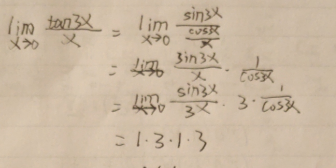 lim x→0 tan3x/x = lim x→0 (sin3x/cos3x)/x
= lim x→0 sin3x/x · 1/cos3x
= lim x→0 sin3x/3x · 3 · 1/cos3x
= 1·3·1·3